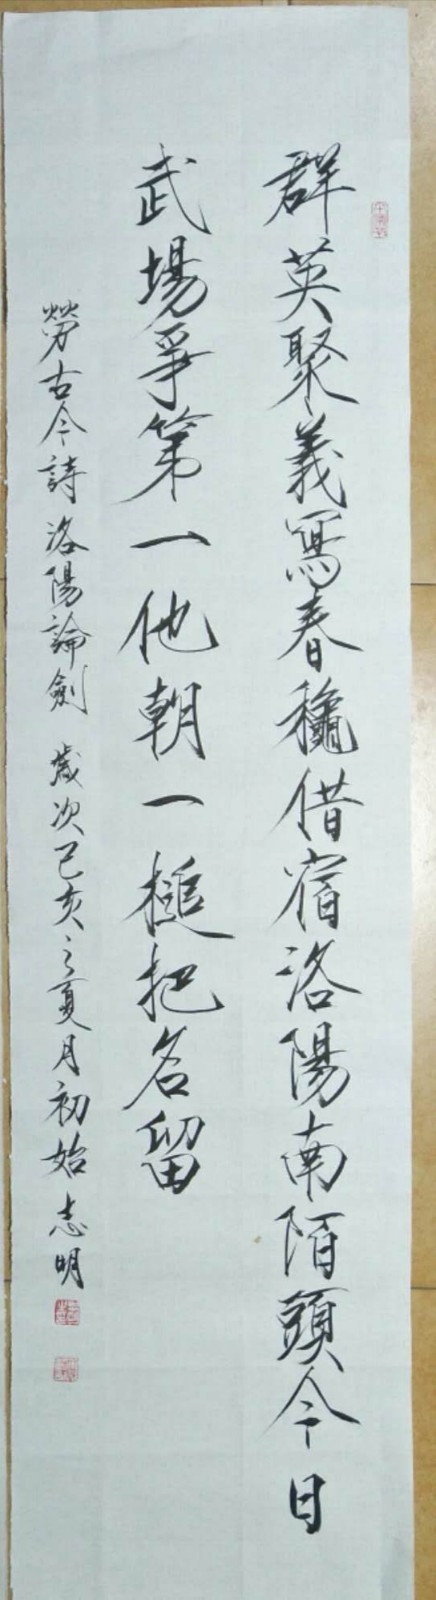 群英聚義寫春穐借宿洛陽南陌頭今日
武場爭第一他朝一槌把名留
勞古今詩洛陽論劍 歲次己亥之夏月初始志明